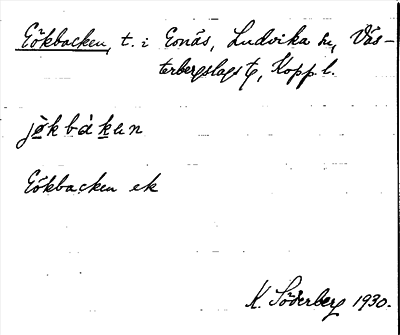 Gökbacken, t. i Gonäs, Ludvika sn, Väs-
terbergslags tg, Kopp. l.
jö̀kbàkεn
Gökbacken ek
K. Söderberg 1930.